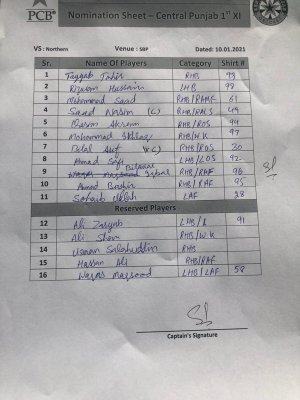 PCB® Nomination Sheet – Central Punjab 1st XI
VS : Northern Venue : SBP Dated: 10.01.2021
Sr. Name Of Players Category Shirt #
1 Tayyab Tahir RHB 93
2 Rizwan Hussain LHB 99
3 Mohammad Saad RHB/RAMF 61
4 Saad Nasim (C) RHB/RALS 49
5 Qasim Akram RHB/ROS 94
6 Mohammad Ikhlaq RHB/WK 97
7 Bilal Asif (VC) RHB/ROS 30
8 Ahmad Safi LHB/LOS 92
9 Bilawal Iqbal RHB/RAF 96
10 Ahmad Bashir RHB/RAF 95
11 Sohaib Ullah LAF 38
Reserved Players
12 Ali Zaryab LHB/ 91
13 Ali Shan RHB/WK
14 Usman Salahuddin RHB
15 Hassan Ali RHB/RAF
16 Waqas Maqsood LHB/LAF 58
Captain's Signature